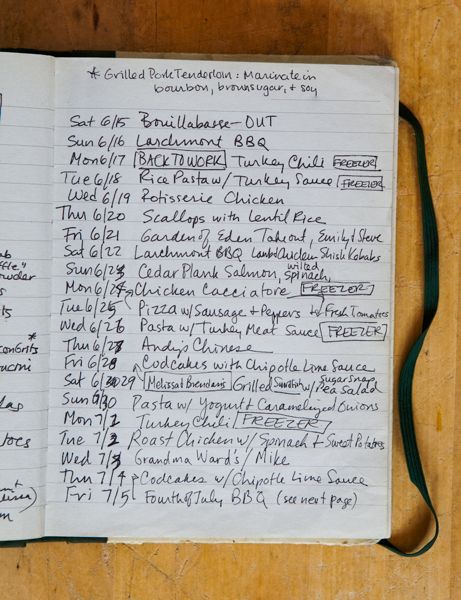 * Grilled Pork Tenderloin: Marinate in
bourbon, brown sugar, + soy
Sat 6/15 Bouillabasse - OUT
Sun 6/16 Larchmont BBQ
Mon 6/17 BACK TO WORK Turkey Chili FREEZER
Tue 6/18 Rice Pasta w/ Turkey Sauce FREEZER
Wed 6/19 Rotisserie Chicken
Thu 6/20 Scallops with Lentil Rice
Fri 6/21 Garden of Eden Takeout, Emily + Steve
Sat 6/22 Larchmont BBQ Lamb + Chicken Shish Kebabs
Sun 6/23 Cedar Plank Salmon, wilted spinach
Mon 6/24 Chicken Cacciatore FREEZER
Tue 6/25 Pizza w/ Sausage + Peppers + Fresh Tomatoes
Wed 6/26 Pasta w/ Turkey Meat Sauce FREEZER
Thu 6/27 Andy's Chinese
Fri 6/28 Codcakes with Chipotle Lime Sauce
Sat 6/29 Melissa + Brendan's Grilled Sugar snap Pea Salad
Sun 6/30 Pasta w/ Yogurt + Caramelized Onions
Mon 7/1 Turkey Chili FREEZER
Tue 7/2 Roast Chicken w/ Spinach + Sweet Potatoes
Wed 7/3 Grandma Ward's / Mike
Thu 7/4 Codcakes w/ Chipotle Lime Sauce
Fri 7/5 Fourth of July BBQ (see next page)